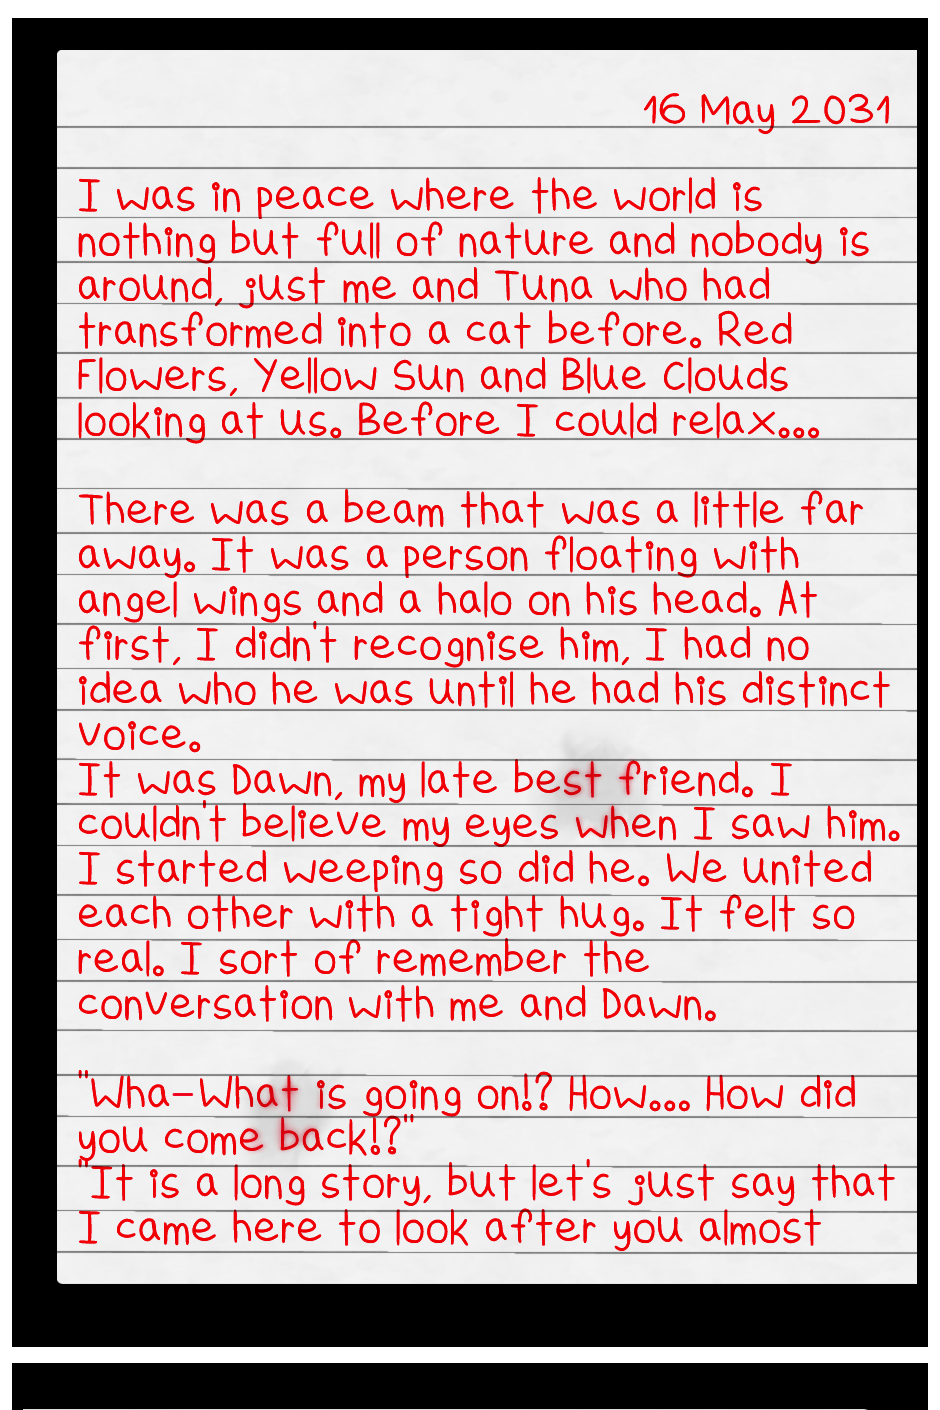 16 May 2031
I was in peace where the world is
nothing but full of nature and nobody is
around, just me and Tuna who had
transformed into a cat before. Red
Flowers, Yellow Sun and Blue Clouds
looking at us. Before I could relax...
There was a beam that was a little far
away. It was a person floating with
angel wings and a halo on his head. At
first, I didn't recognise him, I had no
idea who he was until he had his distinct
voice.
It was Dawn, my late best friend. I
couldn't believe my eyes when I saw him.
I started weeping so did he. We united
each other with a tight hug. It felt so
real. I sort of remember the
conversation with me and Dawn.
"Wha-What is going on!? How... How did
you come back!?"
"It is a long story, but let's just say that
I came here to look after you almost